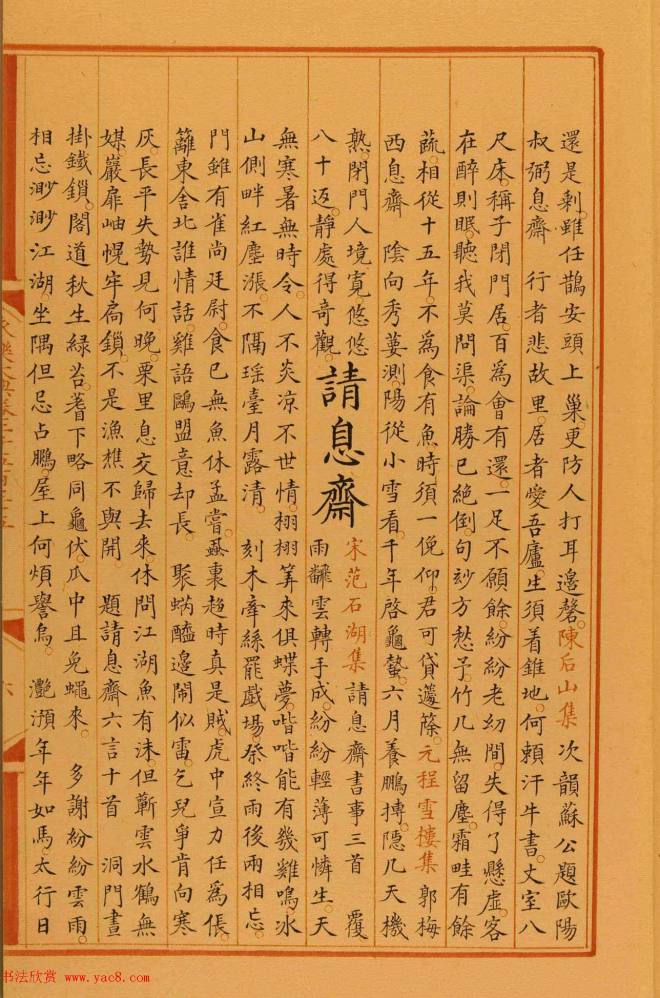 還是剩。雖任鵲安頭上巢。更防人打耳邊磬。陳后山集 次韻蘇公題歐陽
叔弼息齋 行者悲故里。居者愛吾廬。生須着錐地。何賴汗牛書。丈室八
尺床。稱子閉門居。百為會有還。一足不願餘。紛紛老幼間。失得了懸虛。客
在醉則眠。聽我莫問渠。論勝已絕倒。句妙方愁予。竹几無留塵。霜畦有餘
蔬。相從十五年。不為食有魚。時須一俛仰。君可貸蘧篨。元程雪樓集 郭梅
西息齋 陰向秀萋測。陽從小雪看。千年啓龜蟄。六月養鵬摶。隱几天機
熟。閉門人境寬。悠悠八十返。靜處得奇觀。
請息齋
宋范石湖集 請息齋書事三首 覆
雨翻雲轉手成。紛紛輕薄可憐生。天
無寒暑無時令。人不炎凉不世情。栩栩筭來俱蝶夢。喈喈能有幾雞鳴。冰
山側畔紅塵漲。不隔瑶臺月露清。 刻木牽絲罷戲場。祭終雨後兩相忘。
門雖有雀尚廷尉。食已無魚休孟嘗。蝨裏趨時真是賊。虎中宣力任為倀。
籬東舍北誰情話。雞語鷗盟意却長。 聚蜹醯邊閙似雷。乞兒爭肯向寒
灰。長平失勢見何晚。栗里息交歸去來。休問江湖魚有沫。但蘄雲水鶴無
媒。巖扉岫幌牢扃鎖。不是漁樵不與開。 題請息齋六言十首 洞門晝
掛鐵鎖。閣道秋生綠苔。蓍下略同龜伏。瓜中且免蠅來。 多謝紛紛雲雨。
相忘渺渺江湖。坐隅但忌占鵩。屋上何煩譽烏。 灔澦年年如馬。太行日
书法欣赏 www.yac8.com